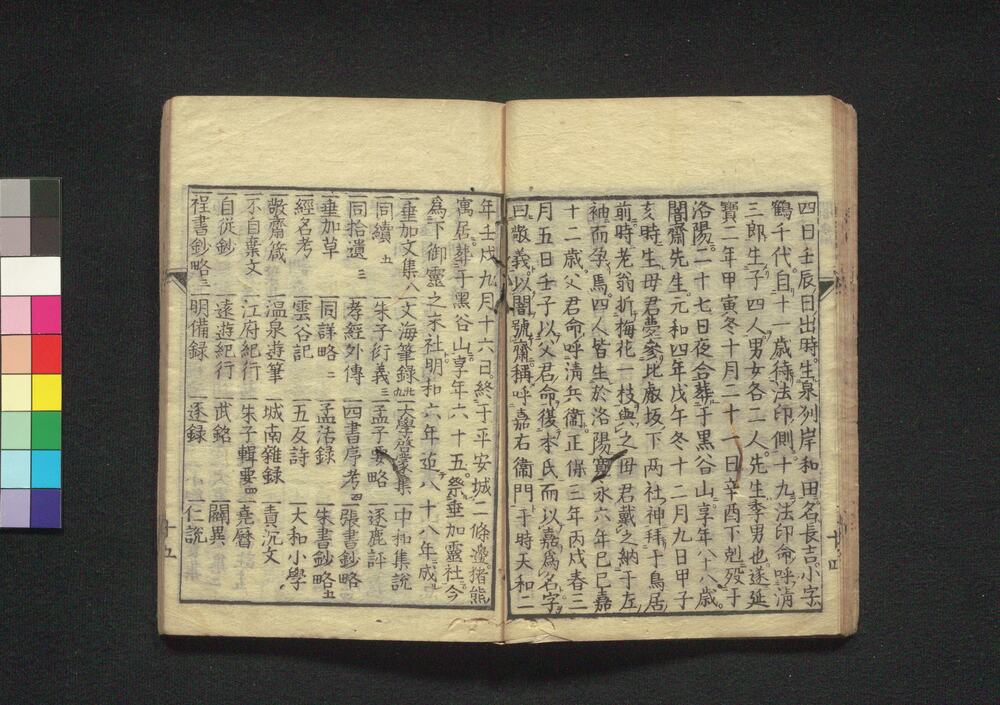 四日壬辰日出時生泉刕岸和田名長吉小字
鶴千代自十一歳待法印側十九法印命呼淸
三郎生子四人男女各二人先生季男也遂延
寶二年甲寅冬十月二十一日辛酉下剋歿于
洛陽二十七日夜合葬于黒谷山享年八十八歳
闇齋先生元和四年戊午冬十二月九日甲子
亥時生母君夢參比叡坂下两社神拜于鳥居
前時老翁折梅花一枝與之母君戴之納于左
袖而孕焉四人皆生於洛陽寛永六年己巳嘉
十二歳父君命呼淸兵衞正保三年丙戌春三
月五日壬子以父君命復本氏而以嘉爲名字
曰敬義以闇號齋稱呼嘉右衞門于時天和二
十四
年壬戌九月十六日終于平安城二條邊猪熊
寓居葬于黒谷山享年六十五祭垂加靈社今
爲下御靈之末社明和六年迄八十八年成
垂加文集八 文海筆錄九 大學啓蒙集 中和集說
同續五 朱子衍義三 孟子要略 逐鹿評
同拾遺三 孝經外傳 四書序考四 張書鈔略
垂加草 同詳略二 孟浩録 朱書鈔略五
經名考 雲谷記 五友詩 大和小學
敬齋箴 温泉遊筆 城南雜録 責沉文
不自棄文 江府紀行 朱子輯要四 堯暦
自從鈔 遠遊紀行 武銘 闢異
程書鈔略三 明備録 逐録 仁說
十五